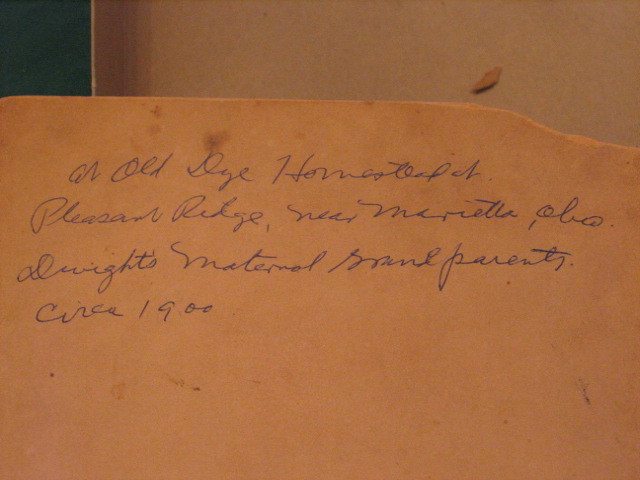 at Old Dye Homestead at.
Pleasant Ridge, near Marietta, Ohio.
Dwight's Maternal Grandparents.
Circa 1900